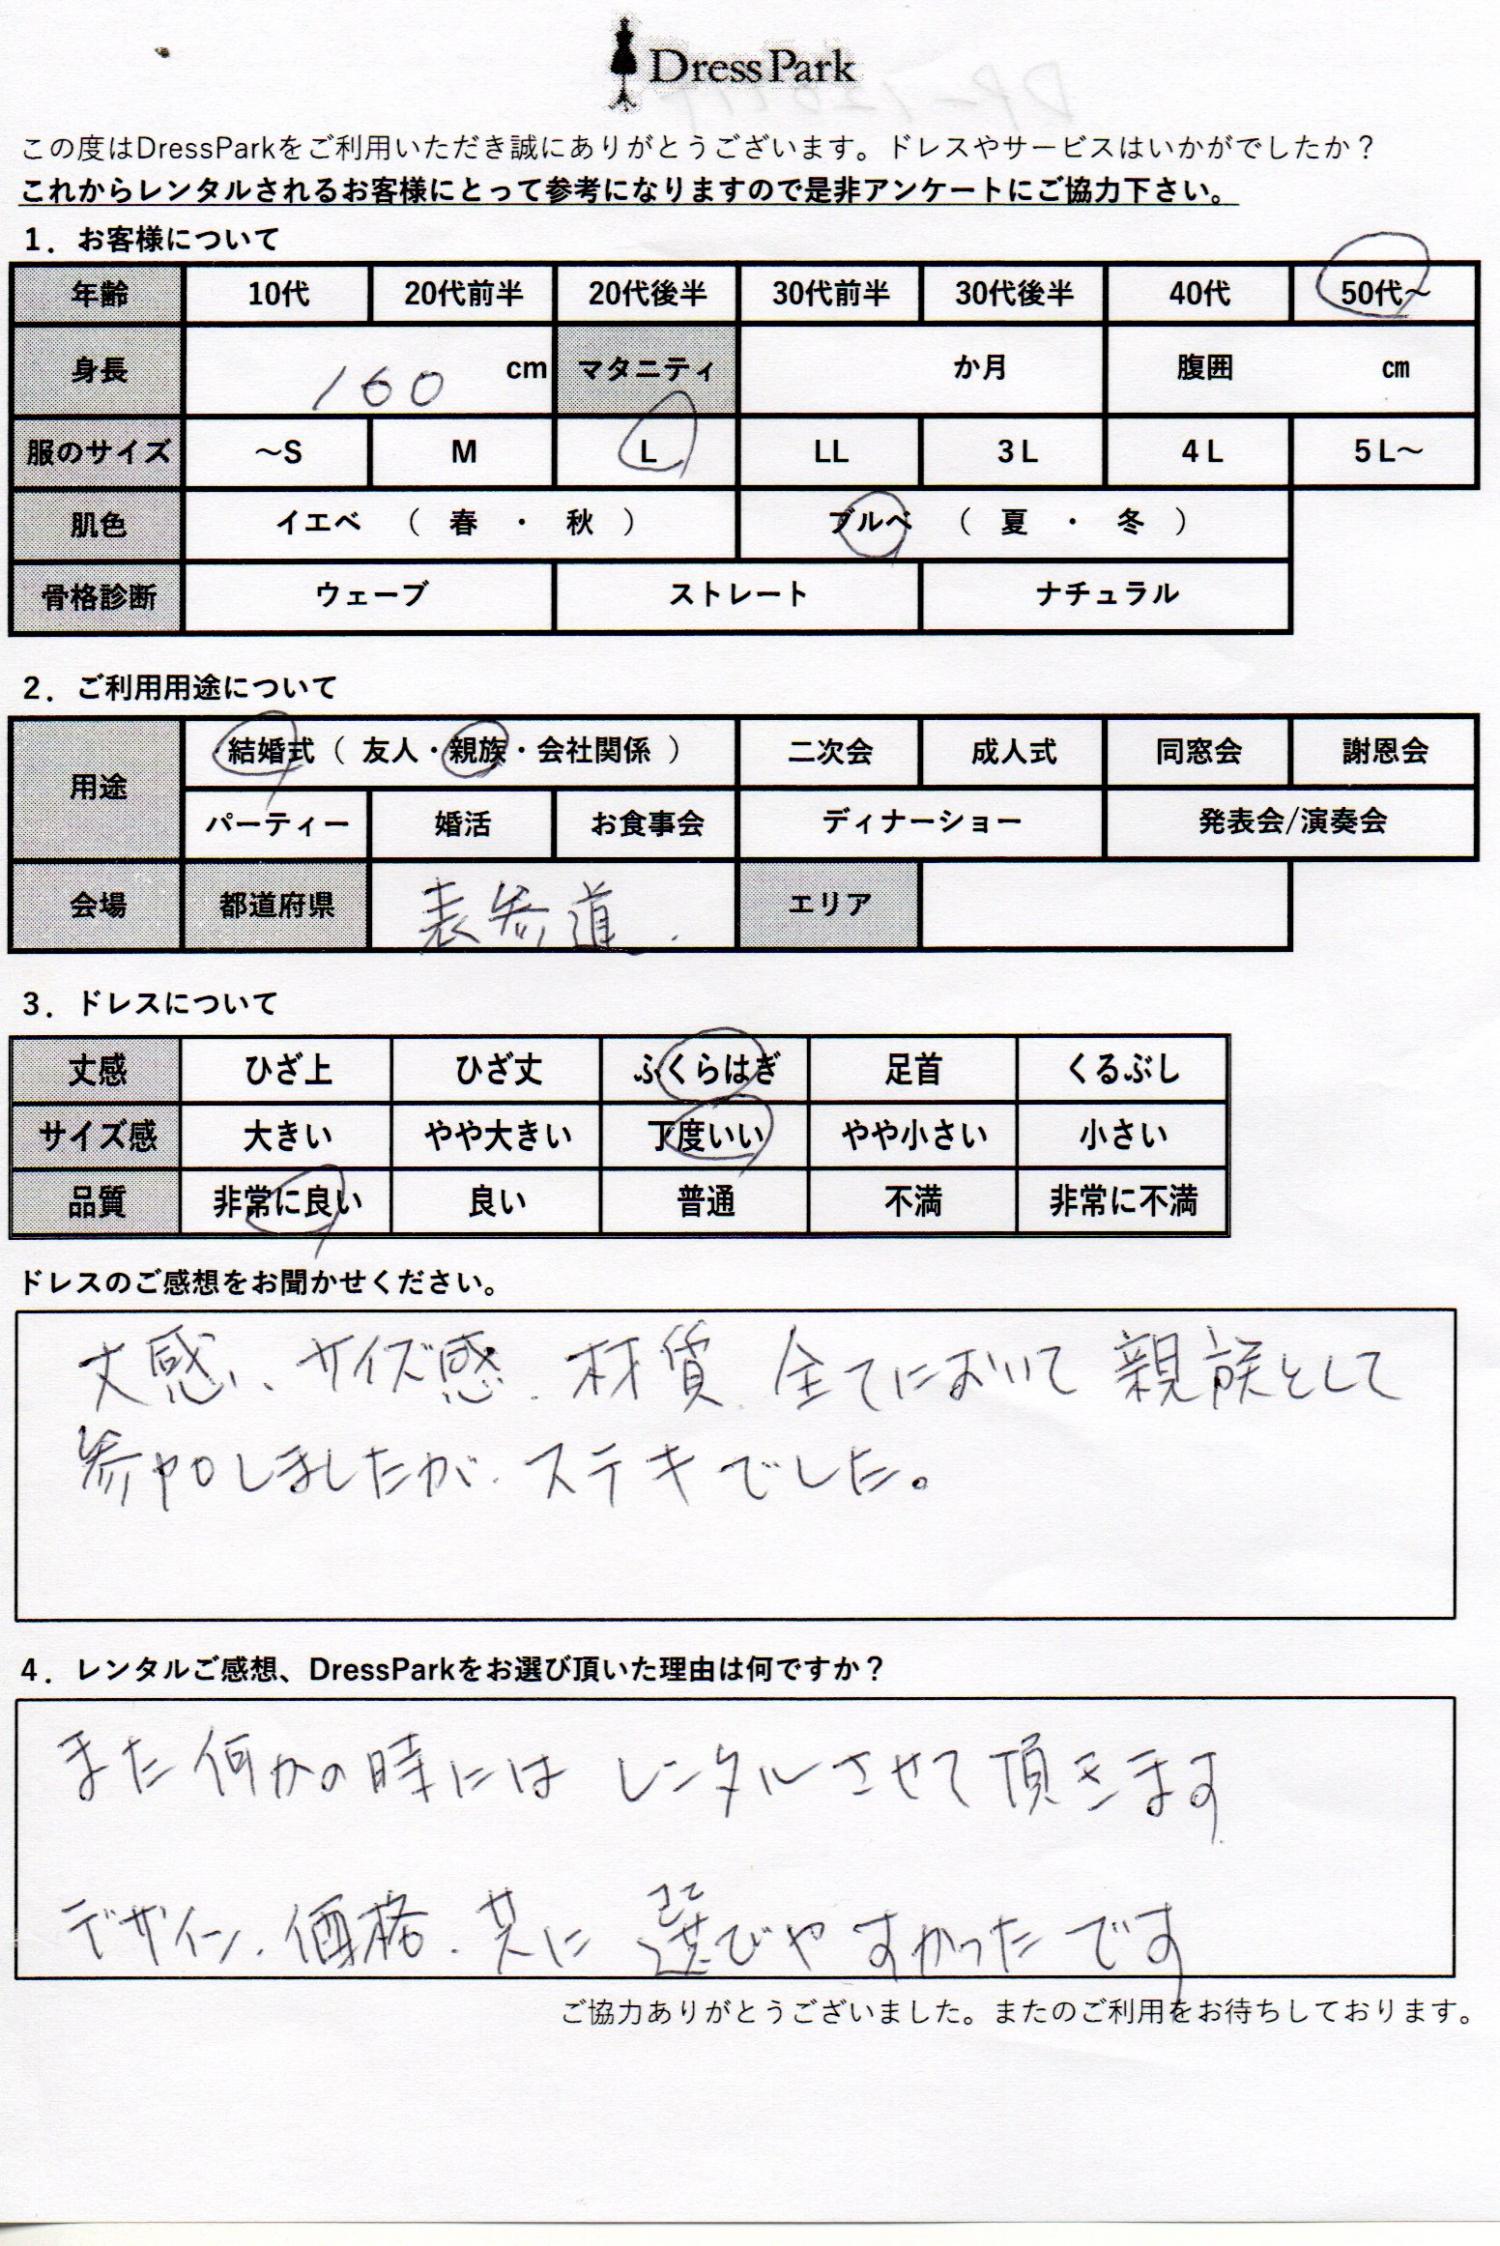 DressPark
この度はDressParkをご利用いただき誠にありがとうございます。ドレスやサービスはいかがでしたか？
これからレンタルされるお客様にとって参考になりますので是非アンケートにご協力下さい。
1．お客様について
年齢 10代 20代前半 20代後半 30代前半 30代後半 40代 50代～
身長 160 cm マタニティ か月 腹囲 cm
服のサイズ ～S M L LL 3L 4L 5L～
肌色 イエベ （ 春 ・ 秋 ） ブルベ （ 夏 ・ 冬 ）
骨格診断 ウェーブ ストレート ナチュラル
2．ご利用用途について
用途 結婚式（ 友人・親族・会社関係 ） 二次会 成人式 同窓会 謝恩会
パーティー 婚活 お食事会 ディナーショー 発表会/演奏会
会場 都道府県 表参道. エリア
3．ドレスについて
丈感 ひざ上 ひざ丈 ふくらはぎ 足首 くるぶし
サイズ感 大きい やや大きい 丁度いい やや小さい 小さい
品質 非常に良い 良い 普通 不満 非常に不満
ドレスのご感想をお聞かせください。
丈感、サイズ感、材質、全てにおいて親族として
参加しましたが、ステキでした。
4．レンタルご感想、DressParkをお選び頂いた理由は何ですか？
また何かの時にはレンタルさせて頂きます
デザイン、価格、共に選びやすかったです
ご協力ありがとうございました。またのご利用をお待ちしております。